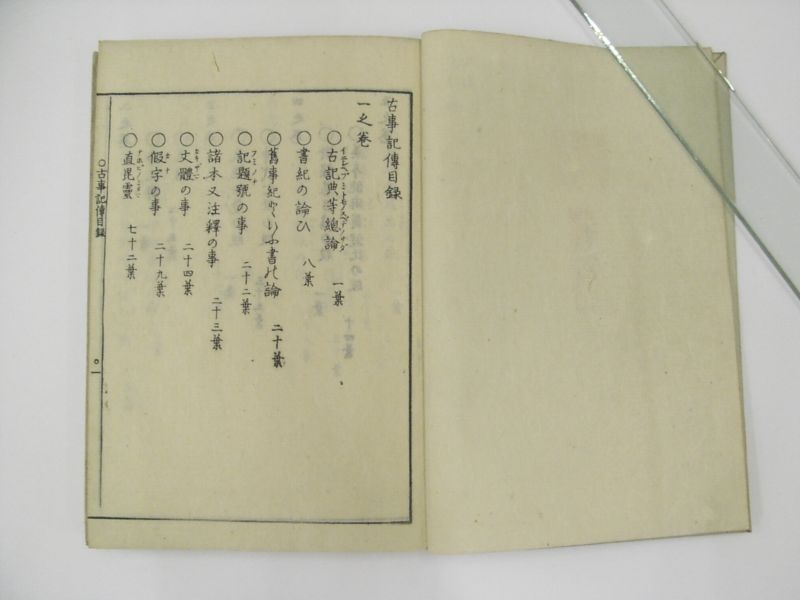 古事記傳目録
一之巻
○古記典等總論 一葉
○書紀の論ひ 八葉
○舊事紀といふ書の論 二十葉
○記題號の事 二十二葉
○諸本又注釋の事 二十三葉
○文體の事 二十四葉
○假字の事 二十九葉
○直毘靈 七十二葉
○古事記傳目録 ○一